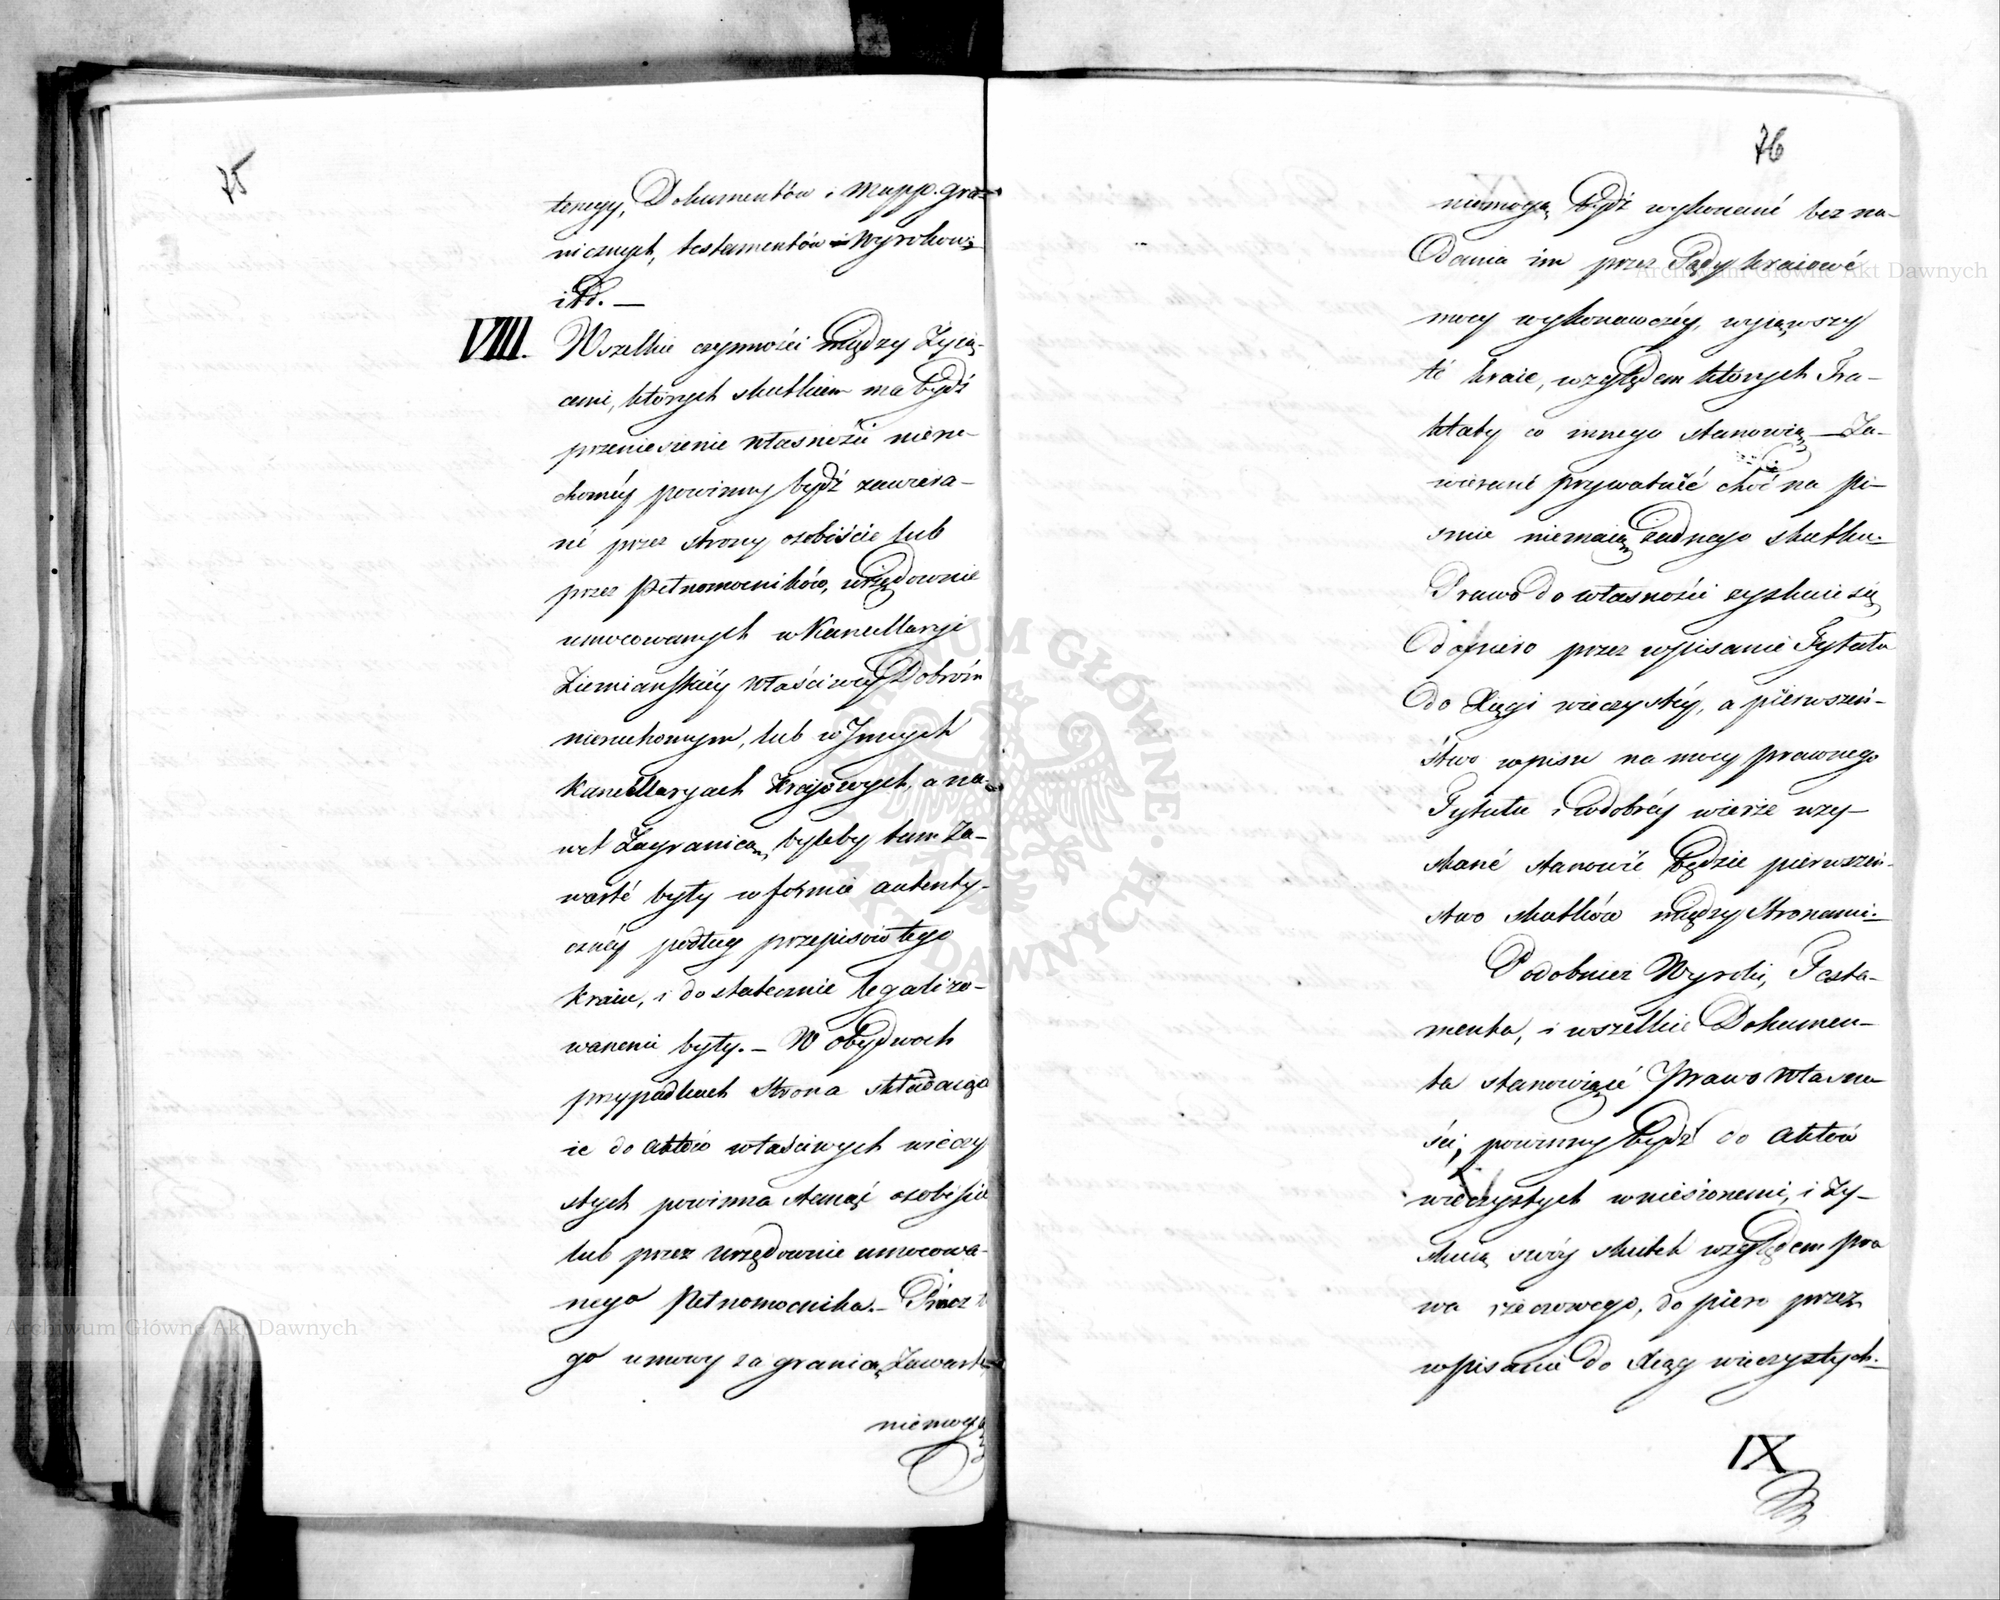 75
teregy, Dokumentów i Mapp. gra-
nicznych, testamentów i Wyroków
itd. —
VIII. Wszelkie czynności między Żyią-
cemi, których skutkiem ma bydź
przeniesienie własności nieru-
chomey powinny bydź zawiera-
né przez strony osobiście lub
przez Pełnomocników, urzędownie
umocowanych w Kancellaryi
Ziemiańskiéy właściwéy Dobróm
nieruchomym, lub w Innych
Kancellaryach Krajowych, a na-
wet Zagranicą, byleby tam Za-
warté były w formie autenty-
cznéy podług przepisów tego
kraiu, i dostatecznie legalizo-
wanemi były. — W obydwoch
przypadkach Strona składaiąca
ie do aktów właściwych wieczy
stych powinna stanąć osobiście
lub przez urzędownie umocowa-
nego Pełnomocnika. — Procz te
go umowy za granicą Zawarte,
niemogą
76
niemogą bydź wykonané bez na-
dania im przez Sądy kraiowé
mocy wykonawczéy, wyiąwszy
té kraie, względem których Tra-
ktaty co innego stanowią — Za-
wierané prywatnié choć na pi-
śmie niemaią żadnego skutku. —
Prawo do własności zyskuie się
dopiero przez wpisanie Tytułu
do Xięgi wieczystéy, a pierwszeń-
stwo wpisu na mocy prawnego
Tytułu i w dobréy wierze uzy-
skané stanowić będzie pierwszeń-
stwo skutków między Stronami. —
Podobnież Wyroki, Testa-
menta, i wszelkie Dokumen-
ta stanowiącé Prawo własno-
ści, powinny bydź do aktów
wieczystych wniesionemi, i zy-
skuią swóy skutek względem pra
wa rzeczowego, do piero przez
wpisanie do Xiąg wieczystych. —
IX
Archiwum Główne Akt Dawnych
Archiwum Główne Akt Dawnych
ARCHIWUM GŁÓWNE AKT DAWNYCH